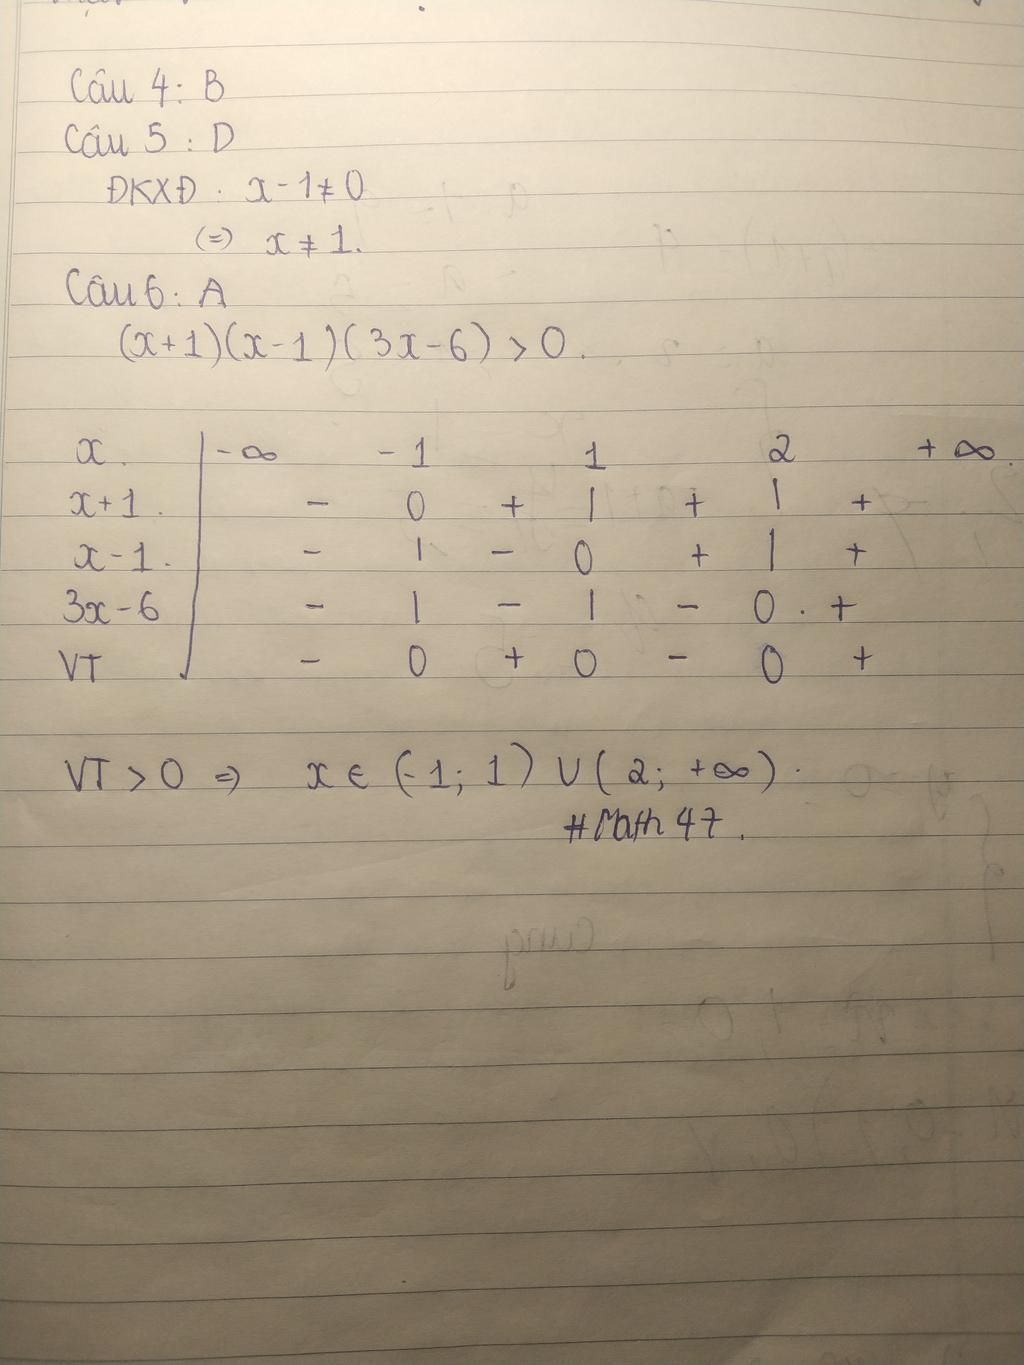 Câu 4: B
Câu 5: D
ĐKXĐ: x-1≠0
(=) x≠1.
Câu 6: A
(x+1)(x-1)(3x-6)>0.
x. | -∞ -1 1 2 +∞.
x+1. | - 0 + | + | +
x-1. | - | - 0 + | +
3x-6 | - | - | - 0 . +
VT | - 0 + 0 - 0 +
VT>0 => x∈(-1; 1) ∪ (2; +∞).
#Math 47.